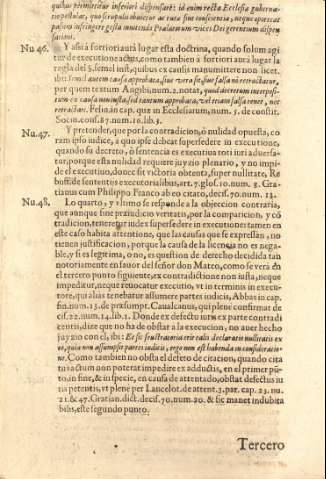 quit remittitur inferiori dispensare: id enim recta Ecclesiæ guberna-
tio postulat, quæ scrupulis obuietur ac tuta sint conscientiæ, neque a peccat
passim infringere gesta mutenda Prælatorum vices Dei gerentum dispen
sationi.
Nu 46. Y assi à fortiori aurà lugar esta doctrina, quando solum agi-
tur de executione actus, como tambien à fortiori aurà lugar la
regla del §. semel inst. quibus ex causis manumittere non licet,
ibi: semel autem causa approbata, siue vera sit siue falsa nõ retractatur,
per quem textum Angibi, num. 2. notat, quòd decretum interposi-
tum ex causa non iusta, sed tantum approbata, vel etiam falsa tenet, nec
retractatur. Felin. in cap. quæ in Ecclesiarum, num. 5. de constit.
Socin. cons. 87. num. 10. lib. 3.
Nu. 47. Y pretender, que por la contradicion, ò nulidad opuesta, co
ram ipso iudice, à quo ipse debeat supersedere in executione,
quando su decreto, ò sentencia es executiua toti iuri aduersa-
tor, porque esta nulidad requiere juyzio plenario, y no impi-
de el executiuo, donec sit victoria obtenta, super nullitate, Re
buff. de sententijs executorialibus, art. 7. glos. 10. num. 8. Gra-
tianus cum Philippo Franco ab eo citato, decis. 70. num. 14.
Nu. 48. Lo quarto, y vltimo se responde a la objeccion contraria,
que aunque sine præiudicio veritatis, por la comparicion, y cõ
tradicion, teneretur index supersedere in executione: tamen en
este caso habita attentione, que las causas que se expressan, no
tienen justificacion, porque la causa de la licencia no es nega-
ble, y si es legitima, o no, es question de derecho decidida tan
notoriamente en fauor del señor don Mateo, como se verà en
el tercero punto siguiente, ex contradictione non iusta, neque
impeditur, neque reuocatur executio, vt in terminis in execu-
tore, qui alias tenebatur assumere partes iudicis, Abbas in cap.
fin. num. 13. de præsumpt. Caualcanus, qui plenè confirmat de-
cis. 22. num. 14. lib. 1. Donde ex defectu iuris ex parte contradi
centis, dize que no ha de obstar a la execucion, no auer hecho
juyzio con el, ibi: Et sic frustratoria erit talis declaratio nullitatis ex
eo, quia non assumpsisse partes iudicis, ergo non est habenda in consideratio-
ne. Como tambien no obsta el defeto de citacion, quando cita
tus actum non poterat impedire ex adductis, en el primer pũ-
to, in fine, & in specie, en causa de attentado, obstat defectus iu
ris petentis, vt plenè per Lancelot. de attent. 3. par. cap. 23. nu.
21. & 47. Gratian. dict. decis. 70. num. 20. & sic manet indubita
bilis, este segundo punto.
Tercero